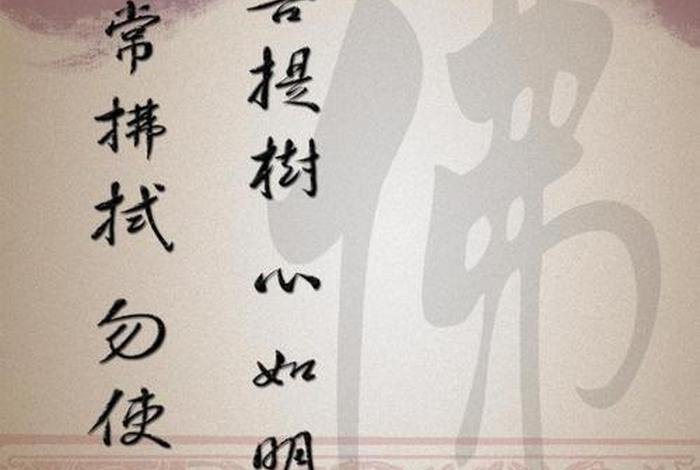 佛
菩提樹心如明
常拂拭勿使